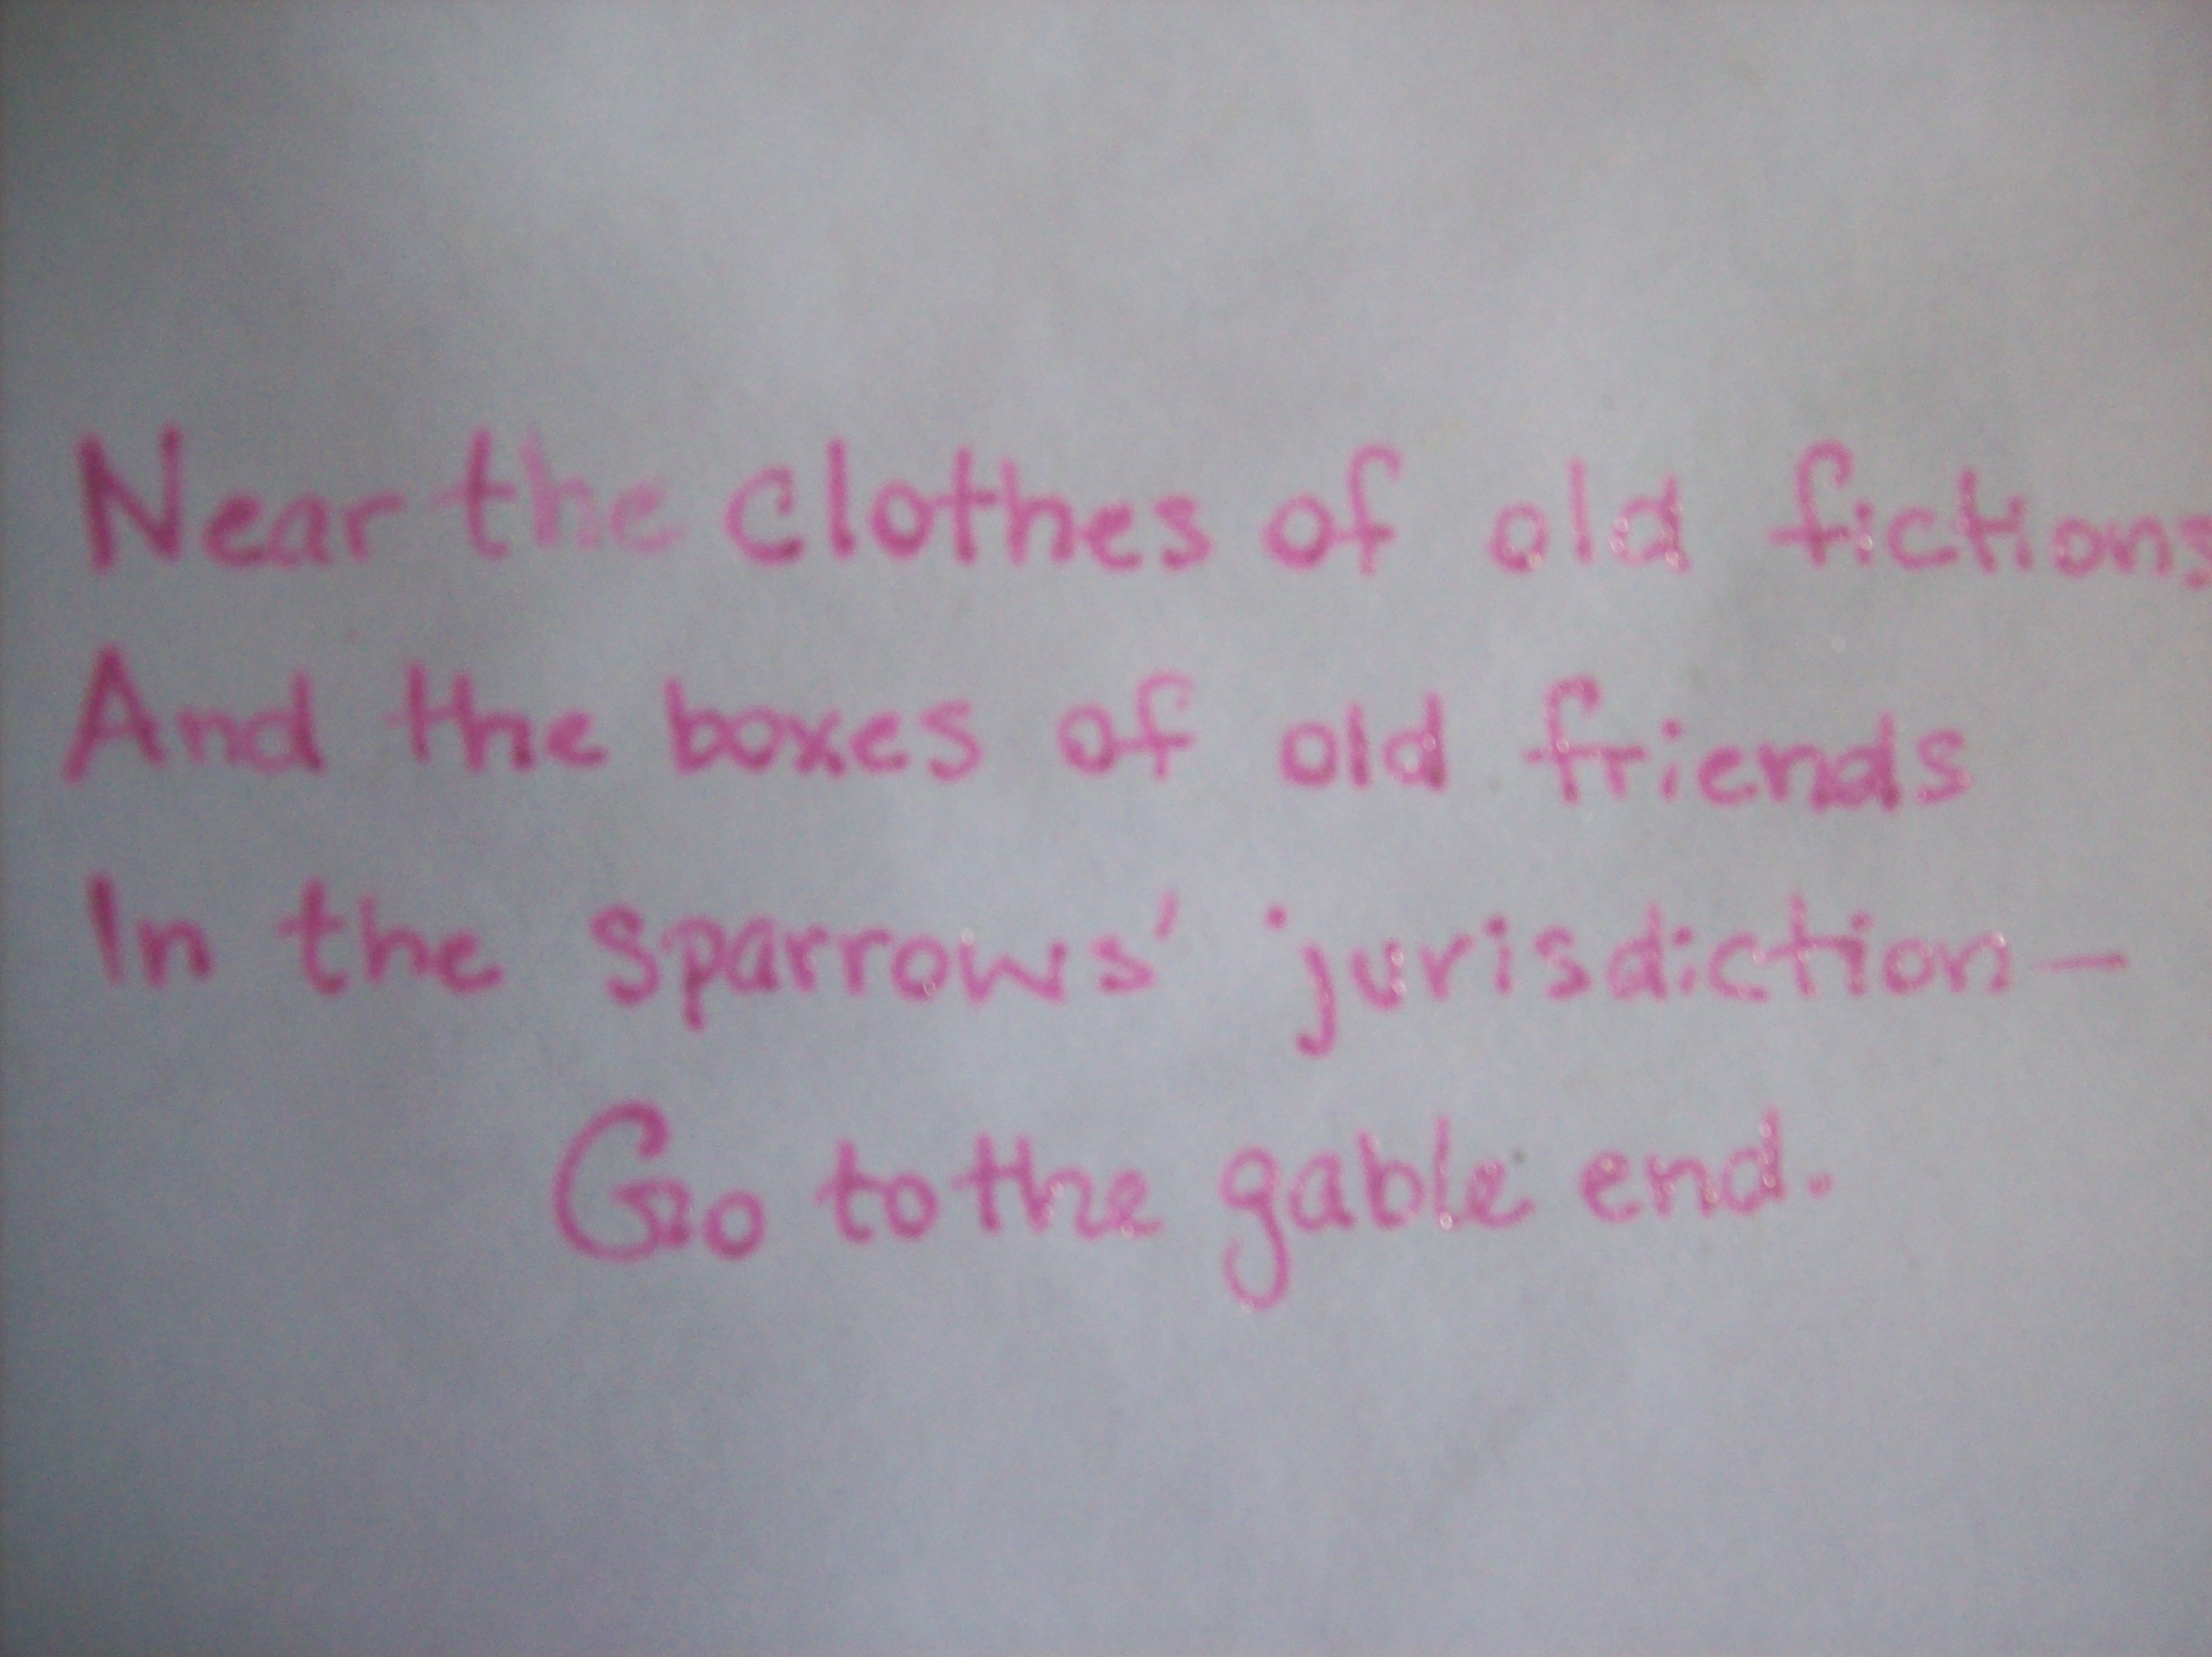 Near the clothes of old fictions
And the boxes of old friends
In the sparrows' jurisdiction—
Go to the gable end.